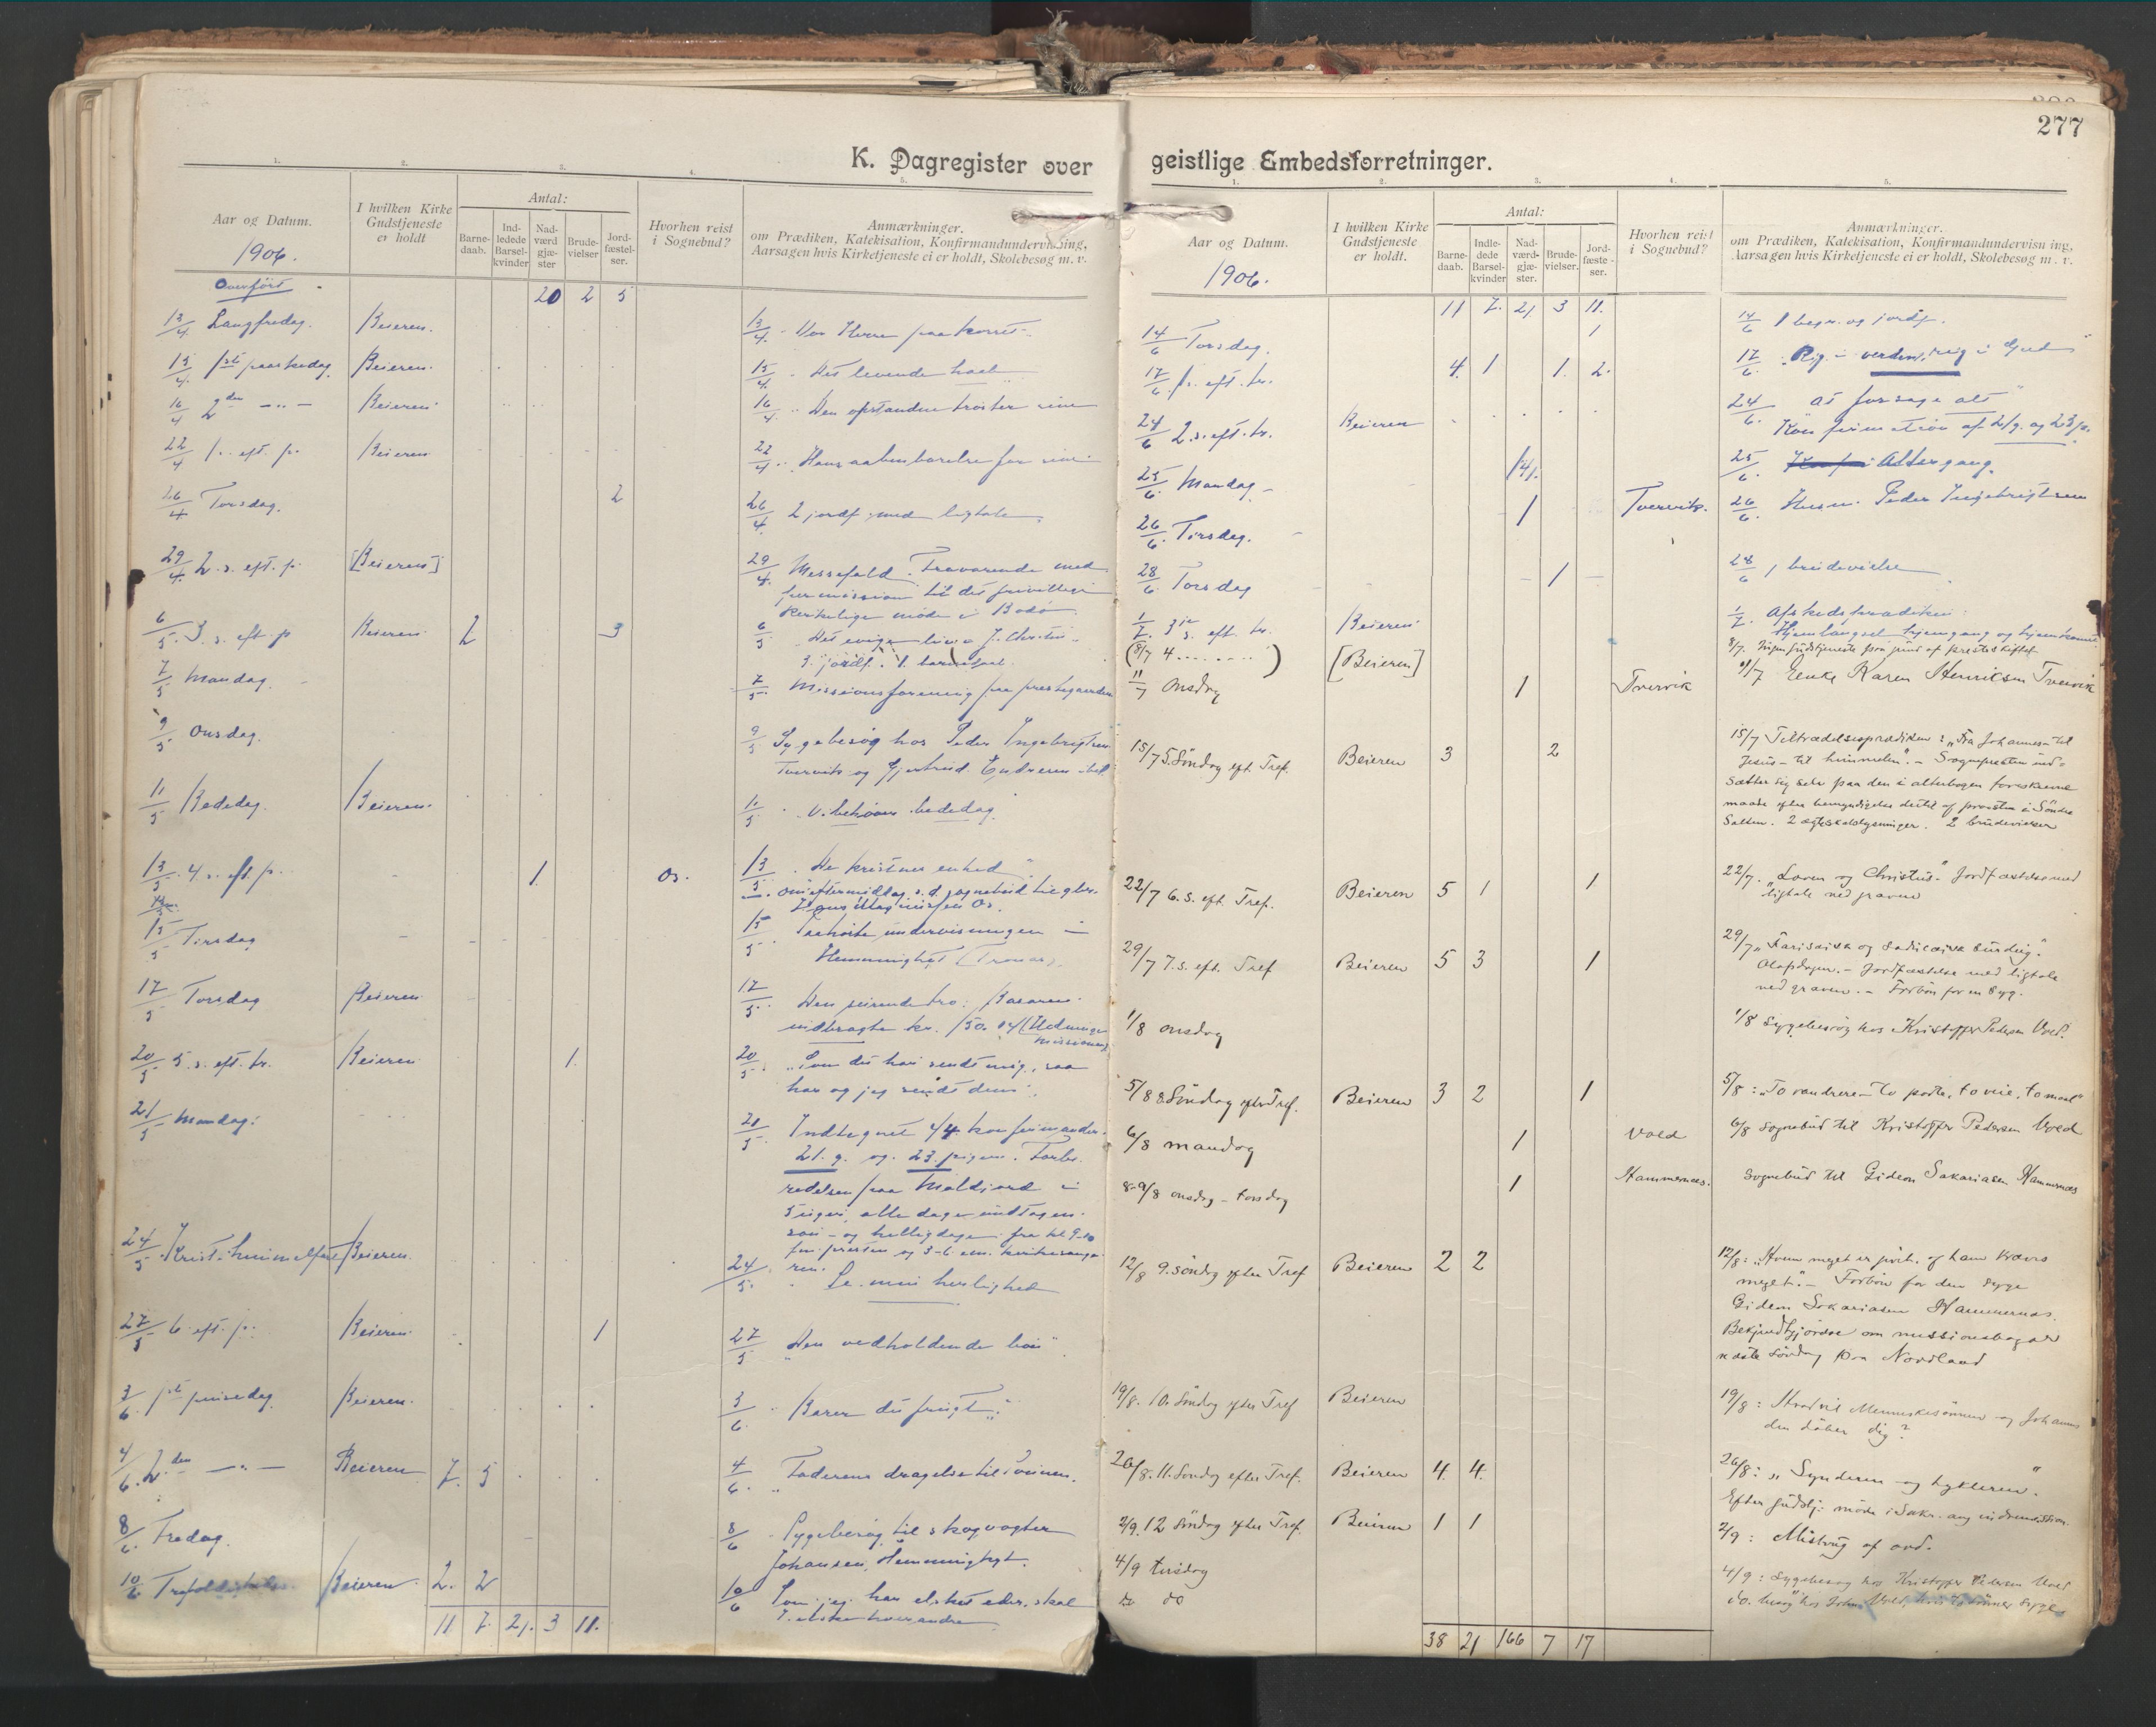 277
K. Dagregister over
1. 2. 3. 4. 5.
Aar og Datum.
1906.
I hvilken Kirke
Gudstjeneste
er holdt
Antal:
Barne-
daab.
Ind-
ledede
Barsel-
kvinder
Nad-
værd
gjæ-
ster
Brude-
vielser
Jord-
fæstel-
ser.
Hvorhen reist
i Sognebud?
Anmærkninger.
om Prædiken, Katekisation, Konfirmandundervisning,
Aarsagen hvis Kirketjeneste ei er holdt, Skolebesøg m. v.
Overført 20 2 5
13/4. Langfredag. Beieren. 13/4. Vor Herre paa korset.
15/4. 1ste paaskedag. Beieren. 15/4. Det levende haab
16/4 2den -"- Beieren. 16/4 Den opstandne trøster sine
22/4 1. s. eft. p. Beieren 22/4. Hans aabenbarelse for sine
26/4 Torsdag. 2 26/4. 2 jordf. med ligtale.
29/4. 2. s. eft. p. [Beieren] 29/4. Messefald. Fraværende med
permission til det frivillige
kirkelige møde i Bodø.
6/5. 3. s. eft. p Beieren. 2 3 6/5 Det evige liv i J. Christus.
3. jordf. 1.
7/5 Mandag. 7/5. Missionsforening paa prestegaarden
9/5. Onsdag. 9/5 Sygebesøg hos Peder Ingebrigtsen
Tvervik og Gjertrud
11/5 Bededag. Beieren. 11/5 Vi behøver bededag
13/5. 4. s. eft. p. 1. Os. 13/5 De kristnes enhed
Om eftermiddag s. d. sognebud til
Hans Magnussen Os.
15/5 Tirsdag 15/5 Paahørte undervisningen i
Hemminghyt (Tronar).
17/5 Torsdag Beieren 17/5. Den seirende tro. Basaren
indbragte kr. 150.04 (Hedninge
missionen)
20/5 5. s. eft. p. Beieren 1. 20/5. "Som du har sendt mig, saa
har og jeg sendt dem".
21/5 Mandag. 21/5. Indtegnet 44 konfirmander.
21. g. og 23. piger. Forbe-
redelsen paa Moldjord i
5 uger, alle dage undtagen
søn- og helligdage fra kl. 9-10
fm. presten og 3-6 em. kirkesange-
ren.
24/5. Krist. himmelfart Beieren. 24/5. Se min herlighed
27/5 6. eft. p. Beieren. 1 27/5 "Den vedholdende bøn".
3/6. 1ste pinsedag. Beieren. 3/6. Bærer du frugt.
4/6. 2den -"- Beieren 7. 5 4/6. Faderens dragelse til Sønnen.
8/6. Fredag. 8/6 Sygebesøg til skogvogter
Johansen, Hemminghyt.
10/6 Beieren. 2. 2 10/6 Som jeg har elsket eder, skal
I elske hverandre
11 7. 21. 3 11.
geistlige Embedsforretninger.
1. 2. 3. 4. 5.
Aar og Datum.
1906.
I hvilken Kirke
Gudstjeneste
er holdt.
Antal:
Barne-
daab.
Indle-
dede
Barsel-
kvinder
Nad-
værd-
gjæ-
ster.
Brude-
vielser.
Jord-
fæste-
ser.
Hvorhen reist
i Sognebud?
Anmærkninger.
om Prædiken, Katekisation, Konfirmandundervisn ing,
Aarsagen hvis Kirketjeneste ei er holdt, Skolebesøg m. v.
11 7. 21 3 11.
14/6 Torsdag. 1 14/6 1 begr. og jordf.
17/6. 1s. eft. tr. 4. 1 1. 2. 17/6. "Rig i verden, rig i Gud"
24/6 2. s. eft. tr. Beieren 24/6. At forsage alt
Konfirmation af 21 g. og 23 p.
25/6. Mandag 141. 25/6. Altergang.
26/6. Tirsdag. 1 Tvervik. 26/6. Husm. Peder Ingebrigtsen
28/6. Torsdag 1 28/6 1 brudevielse
1/7. 3die s. eft. tr. Beieren. 1/7. Afskedsprædiken:
Hjemlængsel hjemgang og hjemkomst
(8/7 4 ........) [Beieren] 8/7. Ingen gudstjeneste paa grund af presteskiftet
11/7 Onsdag 1 Tvervik 11/7 Enke Karen Henriksen Tvervik
15/7 5. Søndag eft. Tref. Beieren 3 2 15/7 Tiltrædelsesprædiken: "Fra Johannes til
Jesus - til himmelen". - Sognepresten ind-
sætter sig selv paa den i alterbogen foreskrevne
maade efter bemyndigelse dertil af provsten i Søndre
Salten. 2 ægteskabslysninger. 2 brudevielser
22/7 6. s. eft. Tref. Beieren 5 1 1 22/7. "Loven og Christus" Jordfæstelse med
ligtale ved graven
29/7 7. s. eft. Tref Beieren 5 3 1 29/7 "Farisæisk og saducæisk surdeig".
Olafsdagen. - Jordfæstelse med ligtale
ved graven. - Forbøn for en syg.
1/8 onsdag 1/8 Sygebesøg hos Kristoffer Pedersen Vold.
5/8 8. Søndag efter Tref. Beieren 3 2 1 5/8: "To vandrere - to porte, to veie, to maal"
6/8 mandag 1 Vold 6/8 Sognebud til Kristoffer Pedersen Vold
8-9/8 onsdag - torsdag 1 Hammernæs. Sognebud til Gideon Sakariasen Hammernæs
12/8 9. søndag efter Tref Beieren 2 2 12/8: "Hvem meget er givet, af ham kræves
meget". - Forbøn for den syge
Gideon Sakariasen Hammernæs.
Bekjendtgjørelse om missionsdagen
næste Søndag paa Nordland
19/8. 10. Søndag efter Tref Beieren 19/8: Hvad vil Menneskesønnen og Johannes
den døber dig?
26/8. 11. Søndag efter Tref. Beieren 4. 4. 26/8: "Synderen og hykleren".
Efter gudstj. møde i Sakr. ang indremission.
2/9. 12 Søndag efter Tref. Beieren 1 1 2/9: Misbrug af ord.
4/9 tirsdag 4/9: Sygebesøg hos Kristoffer Pedersen Vold
do do do. besøg hos Johan Vold, hvis to sønner syge
38 21 166 7 17